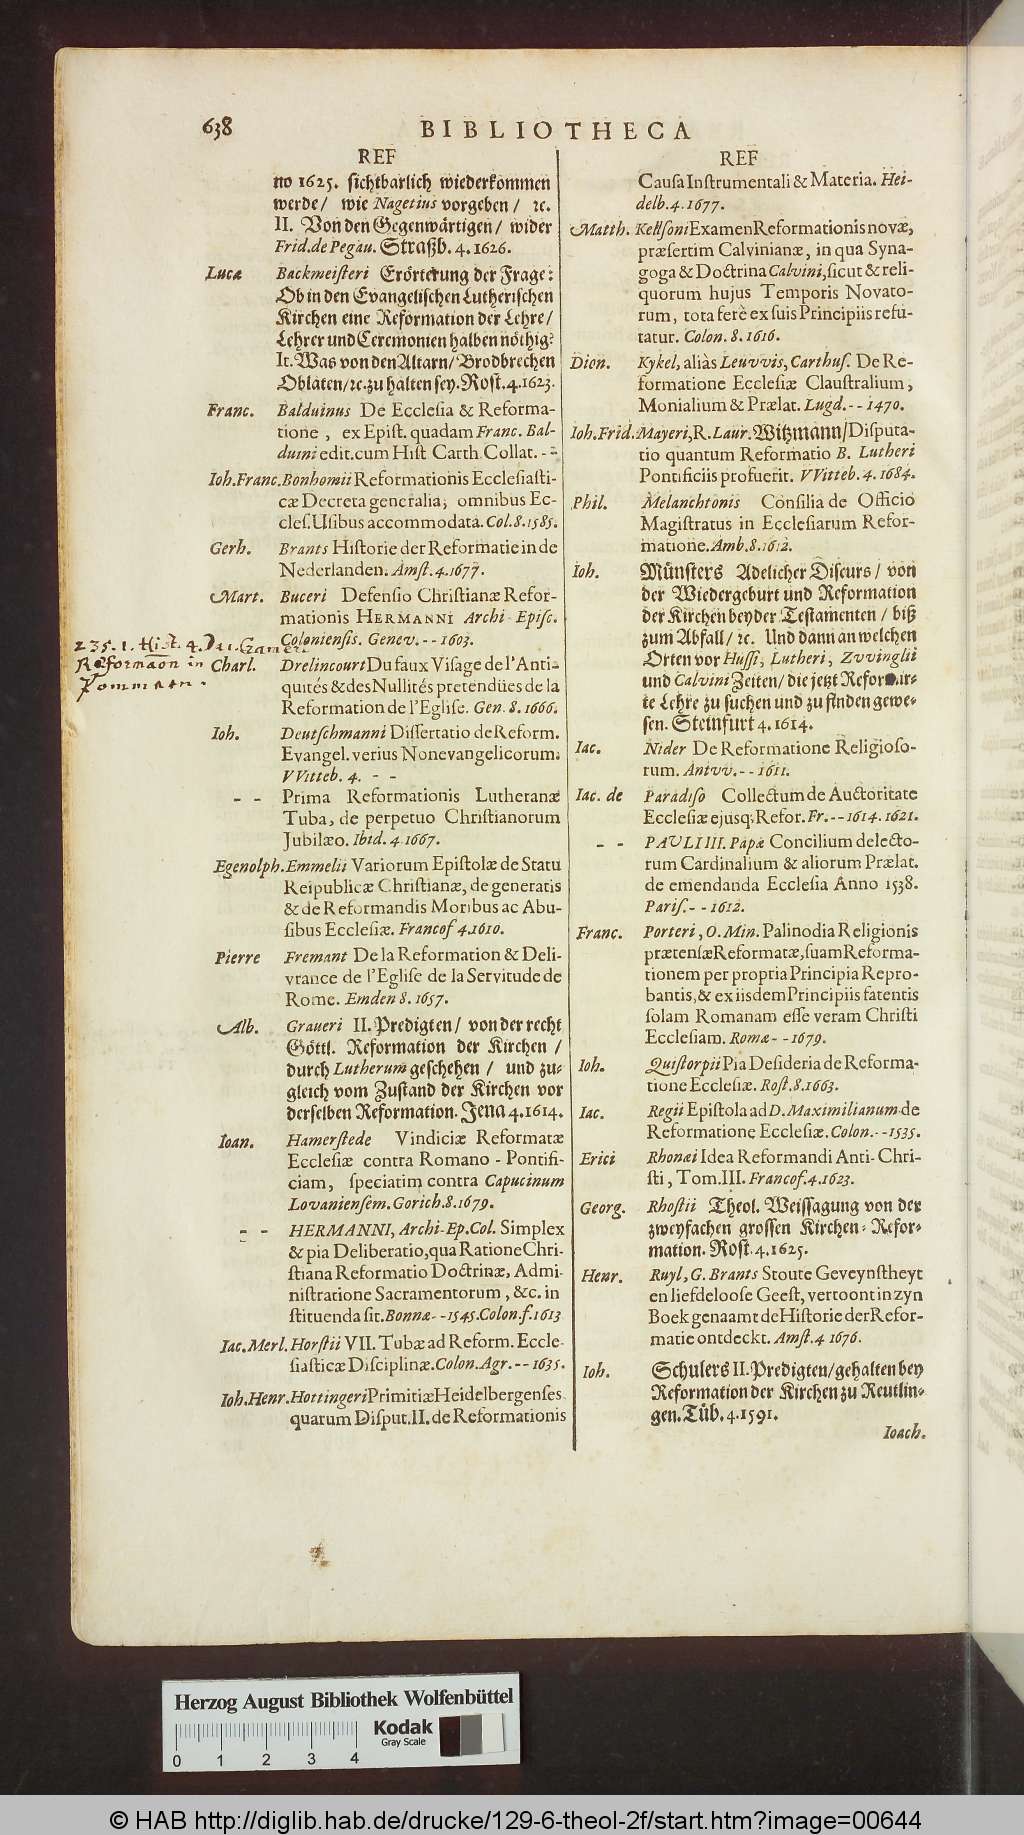 638
BIBLIOTHECA
REF
no 1625. sichtbarlich wiederkommen
werde/ wie Nagetius vorgeben/ ꝛc.
II. Von den Gegenwärtigen/ wider
Frid. de Pegau. Straßb. 4. 1626.
Lucæ Backmeisteri Erörterung der Frage:
Ob in den Evangelischen Lutherischen
Kirchen eine Reformation der Lehre/
Lehrer und Ceremonien halben nöthig?
It. Was von den Altarn/ Brodbrechen
Oblaten/ ꝛc. zu halten sey. Rost. 4. 1623.
Franc. Balduinus De Ecclesia & Reforma-
tione, ex Epist. quadam Franc. Bal-
duini edit. cum Hist Carth. Collat. - -
Ioh. Franc. Bonhomii Reformationis Ecclesiasti-
cæ Decreta generalia, omnibus Ec-
cles. Usibus accommodata. Col. 8. 1585.
Gerh. Brants Historie der Reformatie in de
Nederlanden. Amst. 4. 1677.
Mart. Buceri Defensio Christianæ Refor-
mationis HERMANNI Archi-Episc.
Coloniensis. Genev. - - 1603.
235. 1. Hist. 4. Dan. Cramer
Reformaon in
Pommern.
Charl. Drelincourt Du faux Visage de l'Anti-
quités & des Nullités pretendües de la
Reformation de l'Eglise. Gen. 8. 1666.
Ioh. Deutschmanni Dissertatio de Reform.
Evangel. verius Nonevangelicorum.
VVitteb. 4. - -
- - Prima Reformationis Lutheranæ
Tuba, de perpetuo Christianorum
Jubilæo. Ibid. 4. 1667.
Egenolph. Emmelii Variorum Epistolæ de Statu
Reipublicæ Christianæ, de generatis
& de Reformandis Moribus ac Abu-
sibus Ecclesiæ. Francof 4. 1610.
Pierre Fremant De la Reformation & Deli-
vrance de l'Eglise de la Servitude de
Rome. Emden 8. 1657.
Alb. Graueri II. Predigten/ von der recht
Göttl. Reformation der Kirchen/
durch Lutherum geschehen/ und zu-
gleich vom Zustand der Kirchen vor
derselben Reformation. Jena 4. 1614.
Ioan. Hamerstede Vindiciæ Reformatæ
Ecclesiæ contra Romano-Pontifi-
ciam, speciatim contra Capucinum
Lovaniensem. Gorich. 8. 1679.
- - HERMANNI, Archi-Ep. Col. Simplex
& pia Deliberatio, qua Ratione Chri-
stiana Reformatio Doctrinæ, Admi-
nistratione Sacramentorum, &c. in
stituenda sit. Bonnæ - - 1545. Colon. f. 1613
Iac. Merl. Horstii VII. Tubæ ad Reform. Eccle-
siasticæ Disciplinæ. Colon. Agr. - - 1635.
Ioh. Henr. Hottingeri Primitiæ Heidelbergenses
quarum Disput. II. de Reformationis
REF
Causa Instrumentali & Materia. Hei-
delb. 4. 1677.
Matth. Kellsoni Examen Reformationis novæ,
præsertim Calvinianæ, in qua Syna-
goga & Doctrina Calvini, sicut & reli-
quorum hujus Temporis Novato-
rum, tota ferè ex suis Principiis refu-
tatur. Colon. 8. 1616.
Dion. Kykel, aliàs Leuvvis, Carthus. De Re-
formatione Ecclesiæ Claustralium,
Monialium & Prælat. Lugd. - - 1470.
Ioh. Frid. Mayeri, R. Laur. Witzmann/ Disputa-
tio quantum Reformatio B. Lutheri
Pontificiis profuerit. VVitteb. 4. 1684.
Phil. Melanchtonis Consilia de Officio
Magistratus in Ecclesiarum Refor-
matione. Amb. 8. 1612.
Ioh. Münsters Adelicher Discurs/ von
der Wiedergeburt und Reformation
der Kirchen beyder Testamenten/ biß
zum Abfall/ ꝛc. Und dann an welchen
Orten vor Hussi, Lutheri, Zvvinglii
und Calvini Zeiten/ die jetzt Reformir-
te Lehre zu suchen und zu finden gewe-
sen. Steinfurt 4. 1614.
Iac. Nider De Reformatione Religioso-
rum. Antvv. - - 1611.
Iac. de Paradiso Collectum de Auctoritate
Ecclesiæ ejusq; Refor. Fr. - - 1614. 1621.
- - PAULI III. Papæ Concilium delecto-
rum Cardinalium & aliorum Prælat.
de emendanda Ecclesia Anno 1538.
Paris. - - 1612.
Franc. Porteri, O. Min. Palinodia Religionis
prætensæ Reformatæ, suam Reforma-
tionem per propria Principia Repro-
bantis, & ex iisdem Principiis fatentis
solam Romanam esse veram Christi
Ecclesiam. Romæ - - 1679.
Ioh. Quistorpii Pia Desideria de Reforma-
tione Ecclesiæ. Rost. 8. 1663.
Iac. Regii Epistola ad D. Maximilianum de
Reformatione Ecclesiæ. Colon. - - 1535.
Erici Rhonæi Idea Reformandi Anti-Chri-
sti, Tom. III. Francof. 4. 1623.
Georg. Rhostii Theol. Weissagung von der
zweyfachen grossen Kirchen-Refor-
mation. Rost. 4. 1625.
Henr. Ruyl, G. Brants Stoute Geveynstheyt
en liefdeloose Geest, vertoont in zyn
Boek genaamt de Historie der Refor-
matie ontdeckt. Amst. 4 1676.
Ioh. Schulers II. Predigten/ gehalten bey
Reformation der Kirchen zu Reutlin-
gen. Tüb. 4. 1591.
Ioach.
Herzog August Bibliothek Wolfenbüttel
Kodak
Gray Scale
0 1 2 3 4
© HAB http://diglib.hab.de/drucke/129-6-theol-2f/start.htm?image=00644